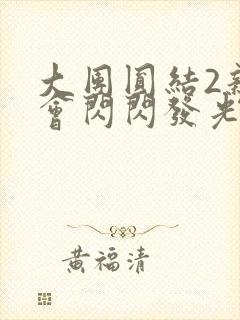 大團圓結2親
會閃閃發光
黃福清